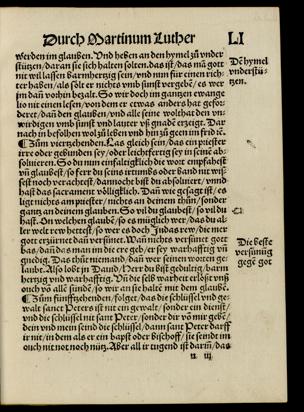 Durch Martinum Luther LI
werden im glauben. Und heben an den hymel zů vnder
stützen/ daran sie sich halten solten. das ist/ das mā gott
nit wil lassen barmhertzig sein/ vnd nun für einen rich-
ter haben/ als solt er nichts vmb sunst vergebē/ es wer
jm dañ vorhin bezalt. So wir doch im gantzen ewange
lio nit einen lesen/ von dem er etwas anders hat gefor-
deret/ dañ den glauben/ vnd alle seine wolthat den vn-
wirdigen vmb sunst vnd lauter vß gnadē erzeigt. Dar
nach in befolhen wol zů leben vnd hin zů geen im frid ꝛc.
Dē hymel
vnderstü-
tzen.
¶ Zům vierzehenden. Las gleich sein/ das ein priester
irre oder gebunden sey/ oder leichtfertig sey in seinē ab-
soluierē. So du nun einfaltigklich die wort empfahest
vñ glaubest/ so fern du seins irtumbs oder band nit wis-
sest noch verachtest/ dannocht bist du absoluiert/ vnnd
hast das sacrament völligklich. Dañ wie gesagt ist/ es
ligt nichts am priester/ nichts an deinem thůn/ sonder
gantz an deinem glauben. So vil du glaubest/ so vil du
hast. On welchen glaubē/ so es müglich wer/ das du al-
ler welt rew hettest/ so wer es doch Judas rew/ die mer
gott erzürnet dañ versünet. Wañ nichts versünet gott
bas/ dañ das man im die eer geb/ er sey warhafftig vñ
gnedig. Das thůt niemand/ dañ wer seinen worten ge-
laubt. Also lobt jn Dauid/ Herr du bist gedultig/ barm
hertzig vnd warhafftig. Vñ die selb warheit erlößt vnß
ouch vō allē sündē/ so wir an sie haltē mit dem glaubē.
Die beste
versünūg
gegē got
¶ Zům fünfftzehenden/ folget/ das die schlüssel vnd ge-
walt sanct Peters ist nit ein gewalt/ sonder ein dienst/
vnd die schlüssel nit sanct Peter/ sonder dir vñ mir gebē/
dein vnd mein seind die schlüssel/ dann sanct Peter darff
ir nit/ in dem als er ein bapst oder bischoff/ sie seindt im
ouch nit not noch nütz. Aber all ir tugend ist darin/ das